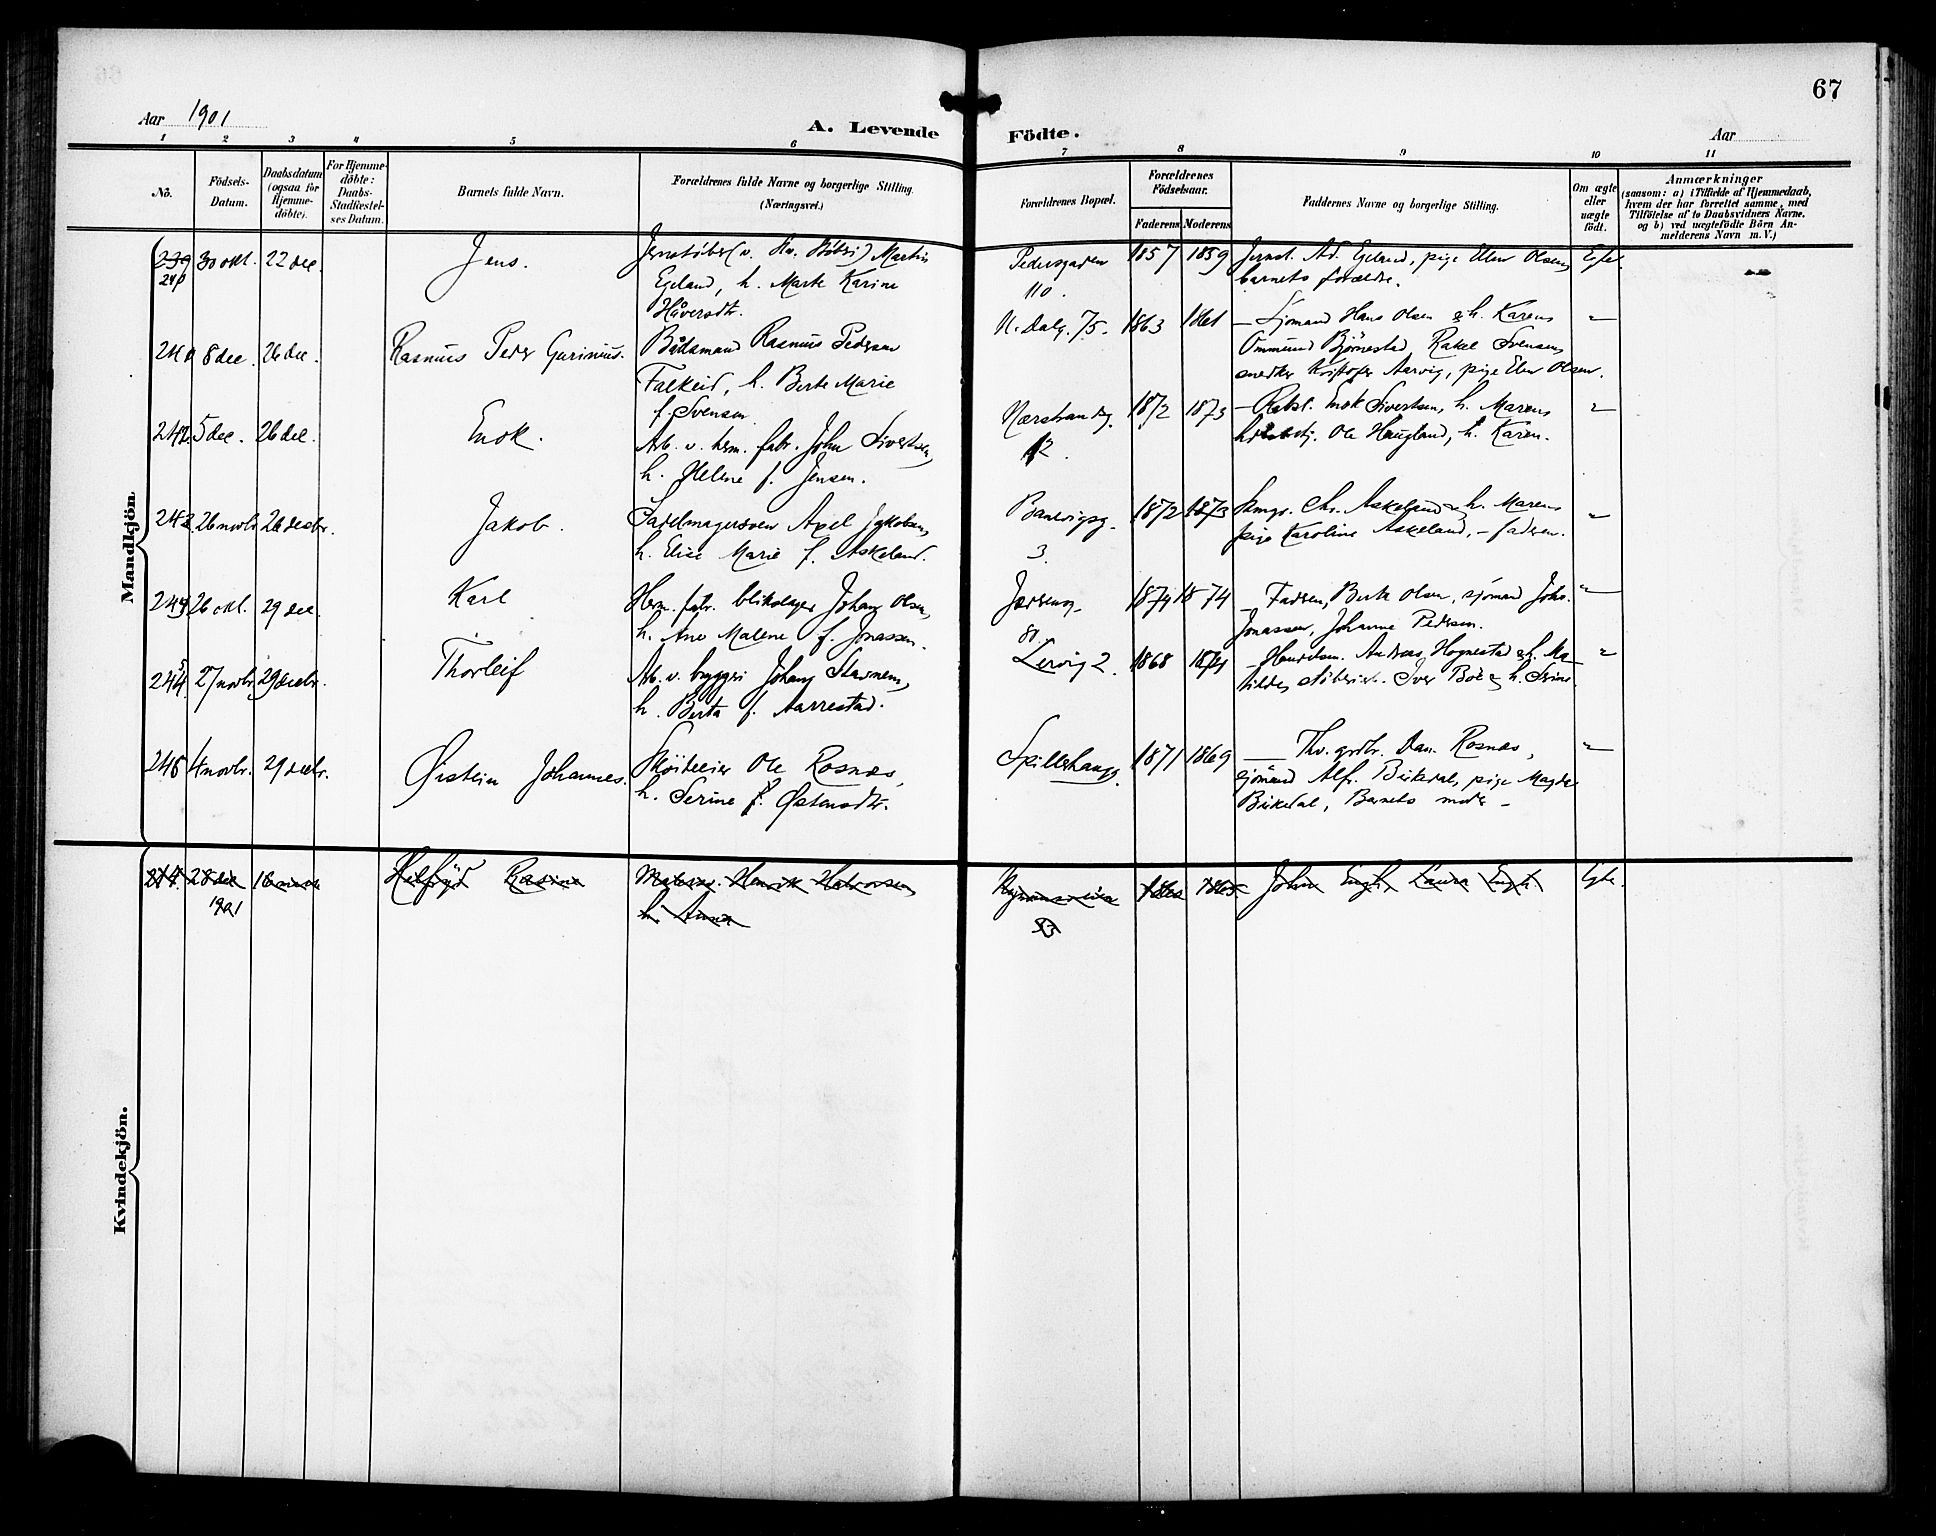 67
Aar 1901
A. Levende Födte.
Aar
1 2 3 4 5 6 7 8 9 10 11
Nô.
Födsels-Datum.
Daabsdatum (ogsaa for Hjemme-döbte).
For Hjemme-döbte: Daabs-Stadfæstel-ses Datum.
Barnets fulde Navn.
Forældrenes fulde Navne og borgerlige Stilling. (Næringsvei.)
Forældrenes Bopæl.
Forældrenes Födselsaar.
Faderens Moderens
Faddernes Navne og borgerlige Stilling.
Om ægte eller uægte födt.
Anmærkninger
(saasom: a) i Tilfælde af Hjemmedaab, hvem der har forrettet samme, med Tilföielse af to Daabsvidners Navne, og b) ved uægtefödte Börn An-melderens Navn m. V.)
Mandkjön.
239 240 30 okt. 22 dec. Jens. Martin
Egeland, h. Marte Karine
Håversdtr.
Pedersgaden 110. 1857 1859
Ad. Egeland, pige Elen Olsen,
barnets forældre.
Egte.
8 dec. 26 dec. Rasmus Peder Gurinius.
Bådsmand Rasmus Pedersen
Falkeid, h. Berte Marie
f. Svensen
N. Dalg. 75. 1863 1861
Sjømand Hans Olsen & h. Karen,
Ommund Bjørnestad Rakel Svensen,
snedker Kristofer Aarvig, pige Elen Olsen.
242 5 dec. 26 dec. Enok.
Arb. v. herm. fabr. John Sivertsen,
h. Helene f. Jensen.
12. 1872 1873
Enok Sivertsen, h. Maren,
Ole Haugland, h. Karen.
243 26 novbr. 26 decbr. Jakob.
Sadelmagersven Axel Jakobsen,
h. Elise Marie f. Askeland.
3. 1872 1873
Chr. Askeland & h. Maren,
pige Karoline Askeland, - faderen.
26 okt. 29 dec. Karl
Herm. fabr. Johan Olsen,
h. Ane Malene f. Jonassen.
80. 1874 1874
Faderen, Berte Olsen, sjømand Johs.
Jonassen, Johanne Pedersen.
27 novbr. 29 decbr. Thorleif
Arb. v. bryggri Johan Stavnem,
h. Berta f. Aarrestad.
Lervig 2. 1868 1874
Andreas Hognestad & h. Ma-
tilde, Iver Bø & h. Serine.
246 4 novbr. 29 decbr. Øistein Johannes.
Skøiteeier Ole Rosnæs,
h. Serine f. Østensdtr.
1871 1869
Dan. Rosnæs,
sjømand Alf. Birkedal, pige Magda
Birkedal, Barnets moder -
Kvindekjön.
28 dec 1901
Rasine
Henrik Halvorsen
h. Anna
53
1865
John Engh, Laura Engh.
Egte.